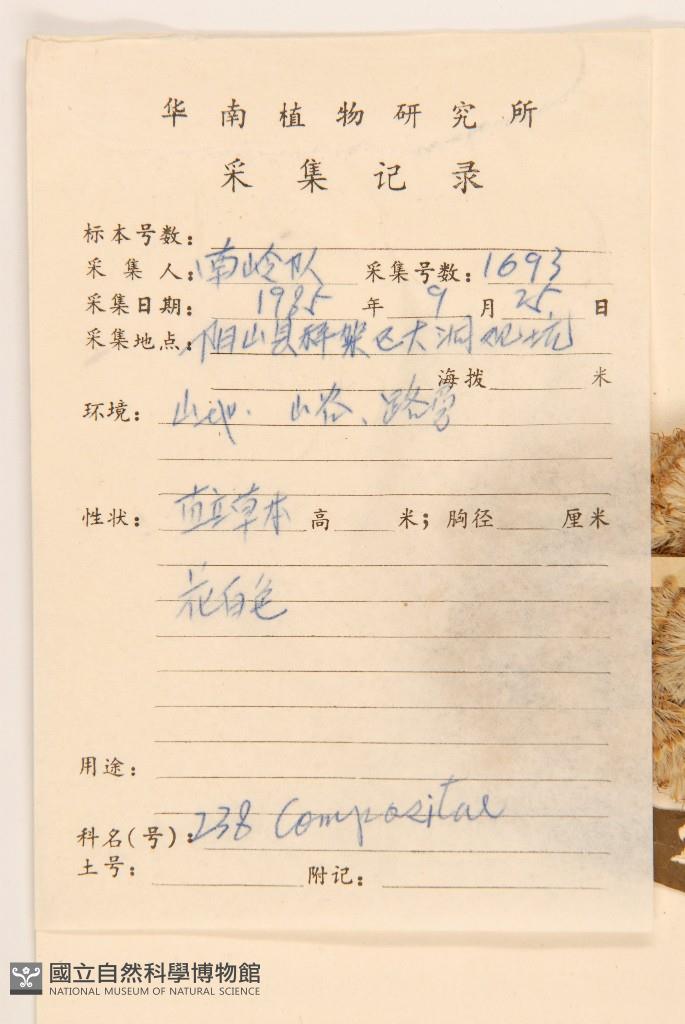 华南植物研究所
采集记录
标本号数:
采集人: 南岭队 采集号数: 1693
采集日期: 1985 年 9 月 25 日
采集地点: 阳山县秤架区大洞 坑
海拨 米
环境: 山地. 山谷、路旁
性状: 直立草本 高 米; 胸径 厘米
花白色
用途:
科名(号): 238 Compositae
土号: 附记:
國立自然科學博物館
NATIONAL MUSEUM OF NATURAL SCIENCE